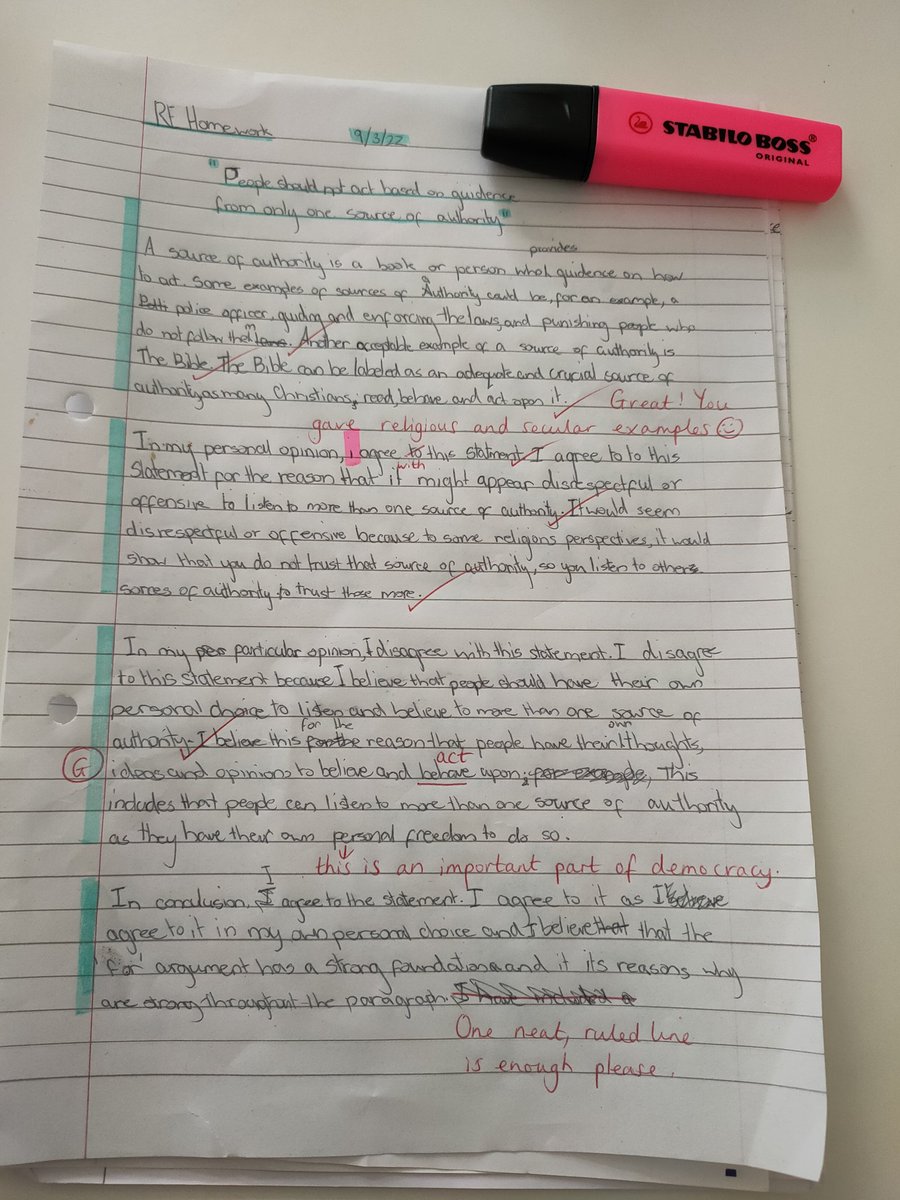 STABILO BOSS®
ORIGINAL
RE Homework 9/3/22
"People should not act based on guidence
from only one source of authority"
provides
A source of authority is a book or person who guidence on how
to act. Some examples of sources of Authority could be, for an example, a
police officer, guiding and enforcing the laws, and punishing people who
do not follow them. Another acceptable example of a source of authority is
The Bible. The Bible can be labeled as an adequate and crucial source of
authority, as many Christians, read, behave and act upon it. Great! You
gave religious and secular examples ☺
In my personal opinion, i agree to this statment. I agree to to this
with
Statement for the reason that it might appear disrespectful or
offensive to listen to more than one source of authority. It would seem
disrespectful or offensive because to some religions perspectives, it would
show that you do not trust that source of authority, so you listen to others
sorces of authority to trust those more.
In my particular opinion, I disagree with this statement. I disagree
to this statement because I believe that people should have their own
personal choice to listen and believe to more than one source of
for the own
authority. I believe this reason that people have their thoughts,
act
G ideas and opinions to believe and behave upon, This
includes that people can listen to more than one source of authority
as they have their own personal freedom to do so.
this is an important part of democracy.
I
In conclusion, I agree to the statement. I agree to it as I
agree to it in my own personal choice and I believe that the
'for' argument has a strong foundation and it its reasons why
are strong throughout the paragraph.
One neat, ruled line
is enough please.